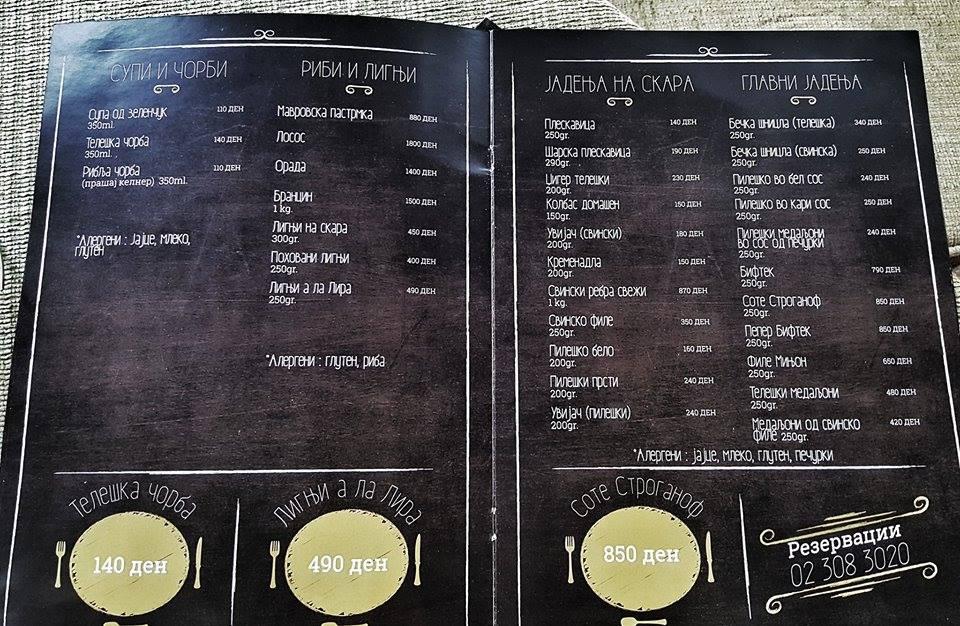 СУПИ И ЧОРБИ
Супа од зеленчук 110 ДЕН
350ml.
Телешка чорба 140 ДЕН
350ml.
Рибља чорба 110 ДЕН
(прашај келнер) 350ml.
*Алергени : Јајце, млеко,
глутен
РИБИ И ЛИГЊИ
Мавровска пастрмка 880 ДЕН
Лосос 1800 ДЕН
Орада 1400 ДЕН
Бранцин 1500 ДЕН
1 kg.
Лигњи на скара 450 ДЕН
300gr.
Поховани лигњи 400 ДЕН
250gr.
Лигњи а ла Лира 490 ДЕН
250gr.
*Алергени : глутен, риба
Телешка чорба
140 ден
Лигњи а ла Лира
490 ден
ЈАДЕЊА НА СКАРА
Плескавица 140 ДЕН
250gr.
Шарска плескавица 190 ДЕН
290gr.
Џигер телешки 230 ДЕН
200gr.
Колбас домашен 150 ДЕН
150gr.
Увијач (свински) 180 ДЕН
200gr.
Кременадла 150 ДЕН
200gr.
Свински ребра свежи 870 ДЕН
1 kg.
Свинско филе 350 ДЕН
250gr.
Пилешко бело 160 ДЕН
200gr.
Пилешки прсти 240 ДЕН
200gr.
Увијач (пилешки) 240 ДЕН
200gr.
ГЛАВНИ ЈАДЕЊА
Бечка шницла (телешка) 340 ДЕН
250gr.
Бечка шницла (свинска) 250 ДЕН
250gr.
Пилешко во бел сос 240 ДЕН
250gr.
Пилешко во кари сос 250 ДЕН
250gr.
Пилешки медаљони 240 ДЕН
во сос од печурки
250gr.
Бифтек 790 ДЕН
250gr.
Соте Строганоф 850 ДЕН
250gr.
Пепер Бифтек 850 ДЕН
250gr.
Филе Мињон 650 ДЕН
250gr.
Телешки медаљони 480 ДЕН
250gr.
Медаљони од свинско 420 ДЕН
филе 250gr.
*Алергени : јајце, млеко, глутен, печурки
Соте Строганоф
850 ден
Резервации
02 308 3020